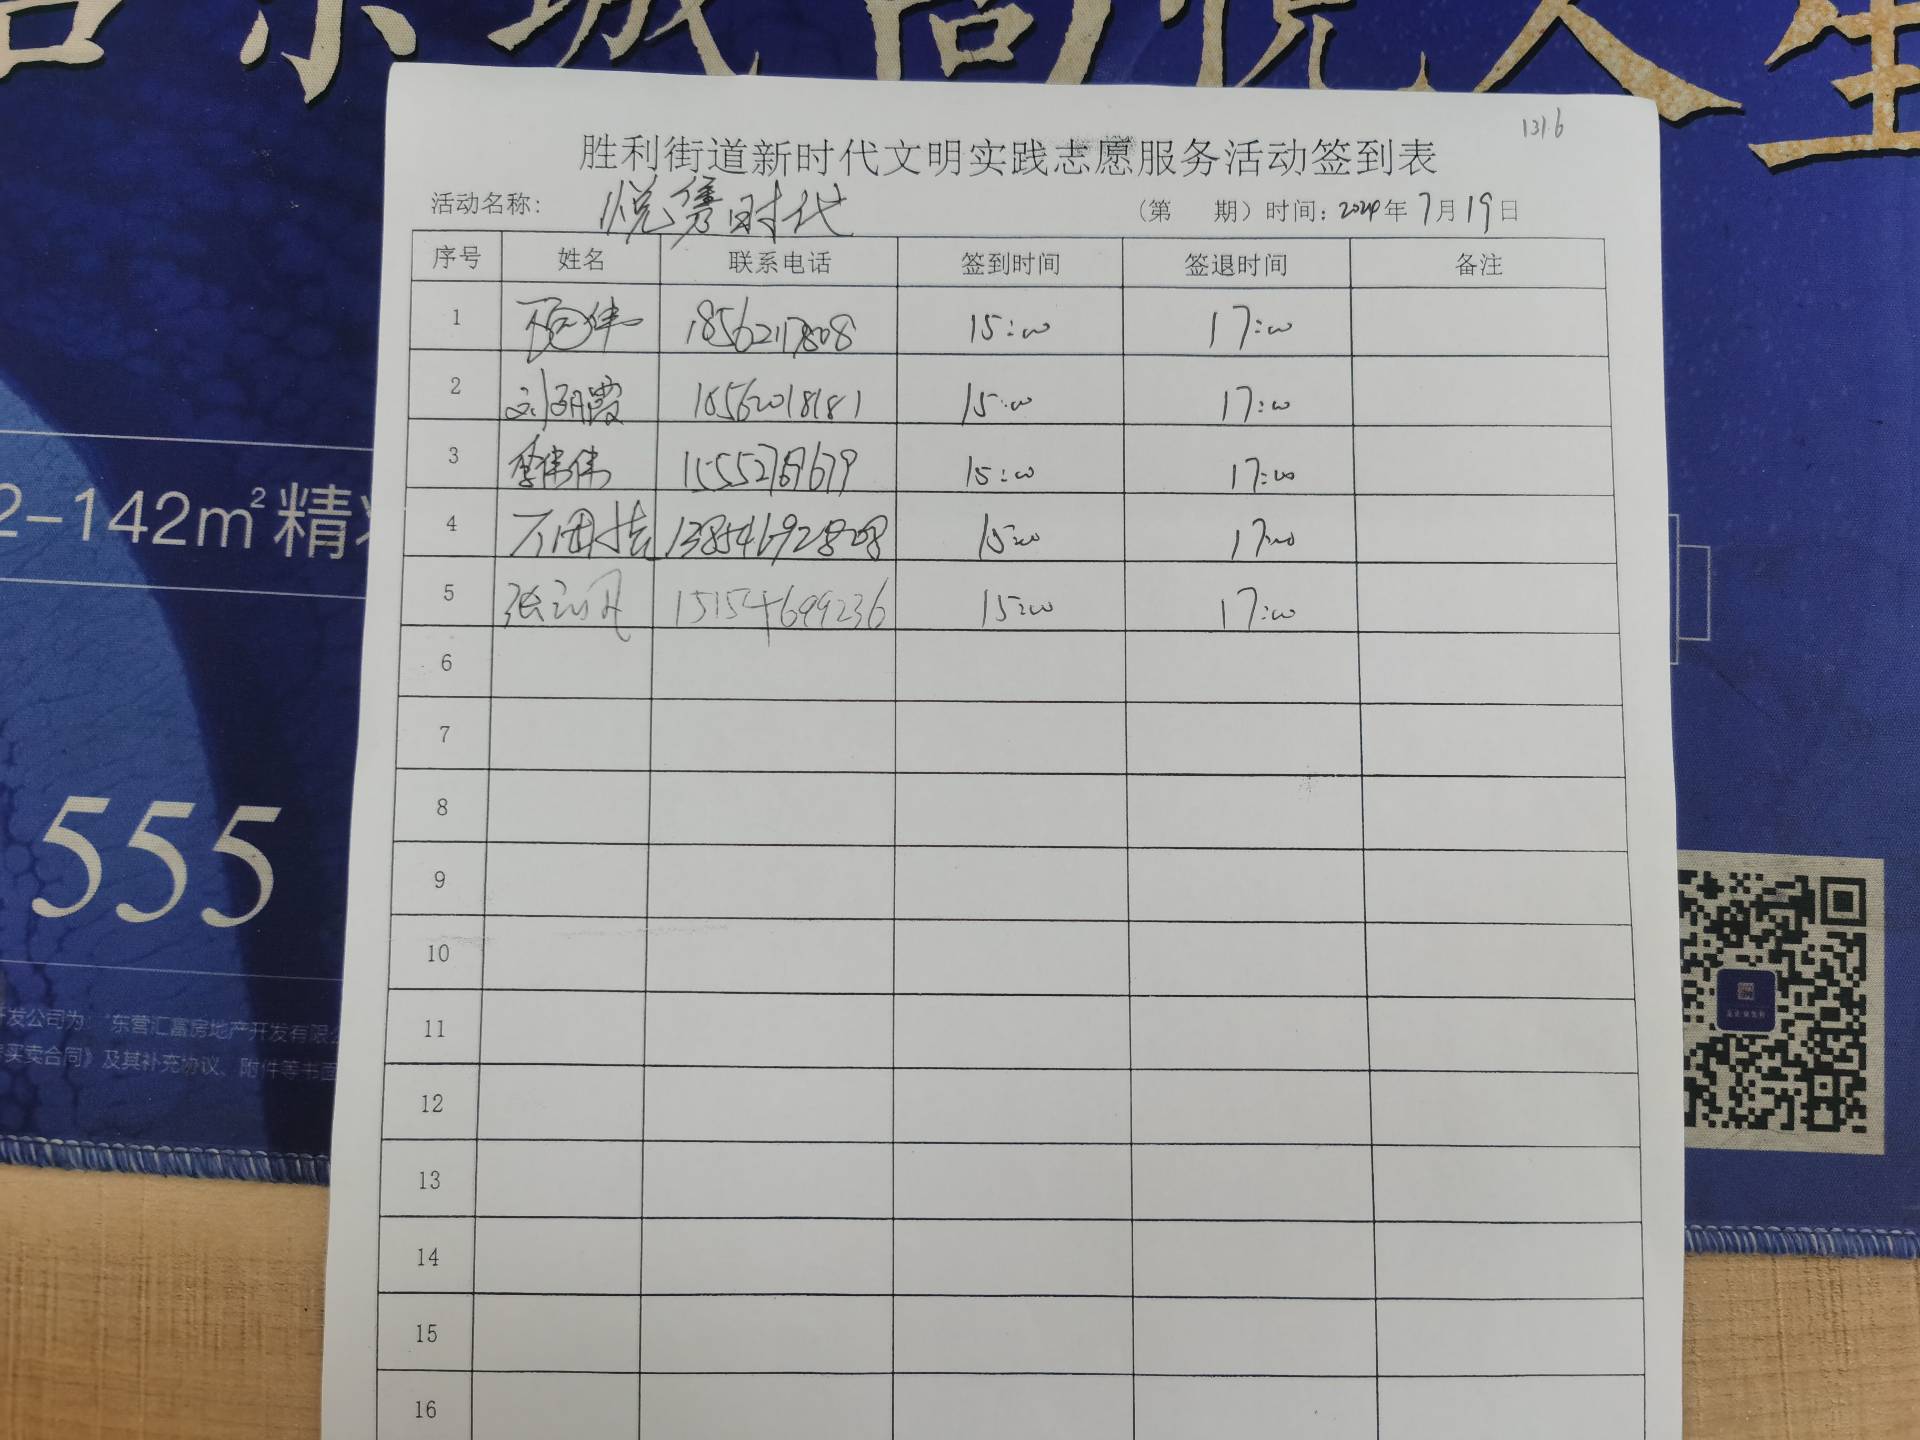 131.6
胜利街道新时代文明实践志愿服务活动签到表
活动名称: 悦隽时代 (第 期) 时间: 2024年 7月19日
序号 姓名 联系电话 签到时间 签退时间 备注
1 18562117808 15:00 17:00
2 刘丽霞 18562018181 15:00 17:00
3 李伟伟 15:00 17:00
4 15:00 17:00
5 15154699236 15:00 17:00
6
7
8
9
10
11
12
13
14
15
16
2-142m²精
555
开发公司为:"东营汇富房地产开发有限公
买卖合同》及其补充协议、附件等书面